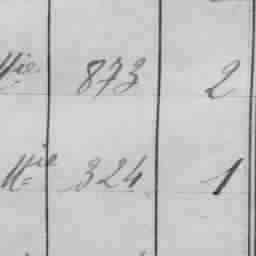 Mie 873 2
Mie 324 1